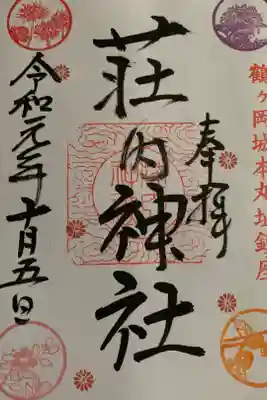 鶴ヶ岡城本丸址鎮座
奉拝
荘内神社
令和元年十月五日